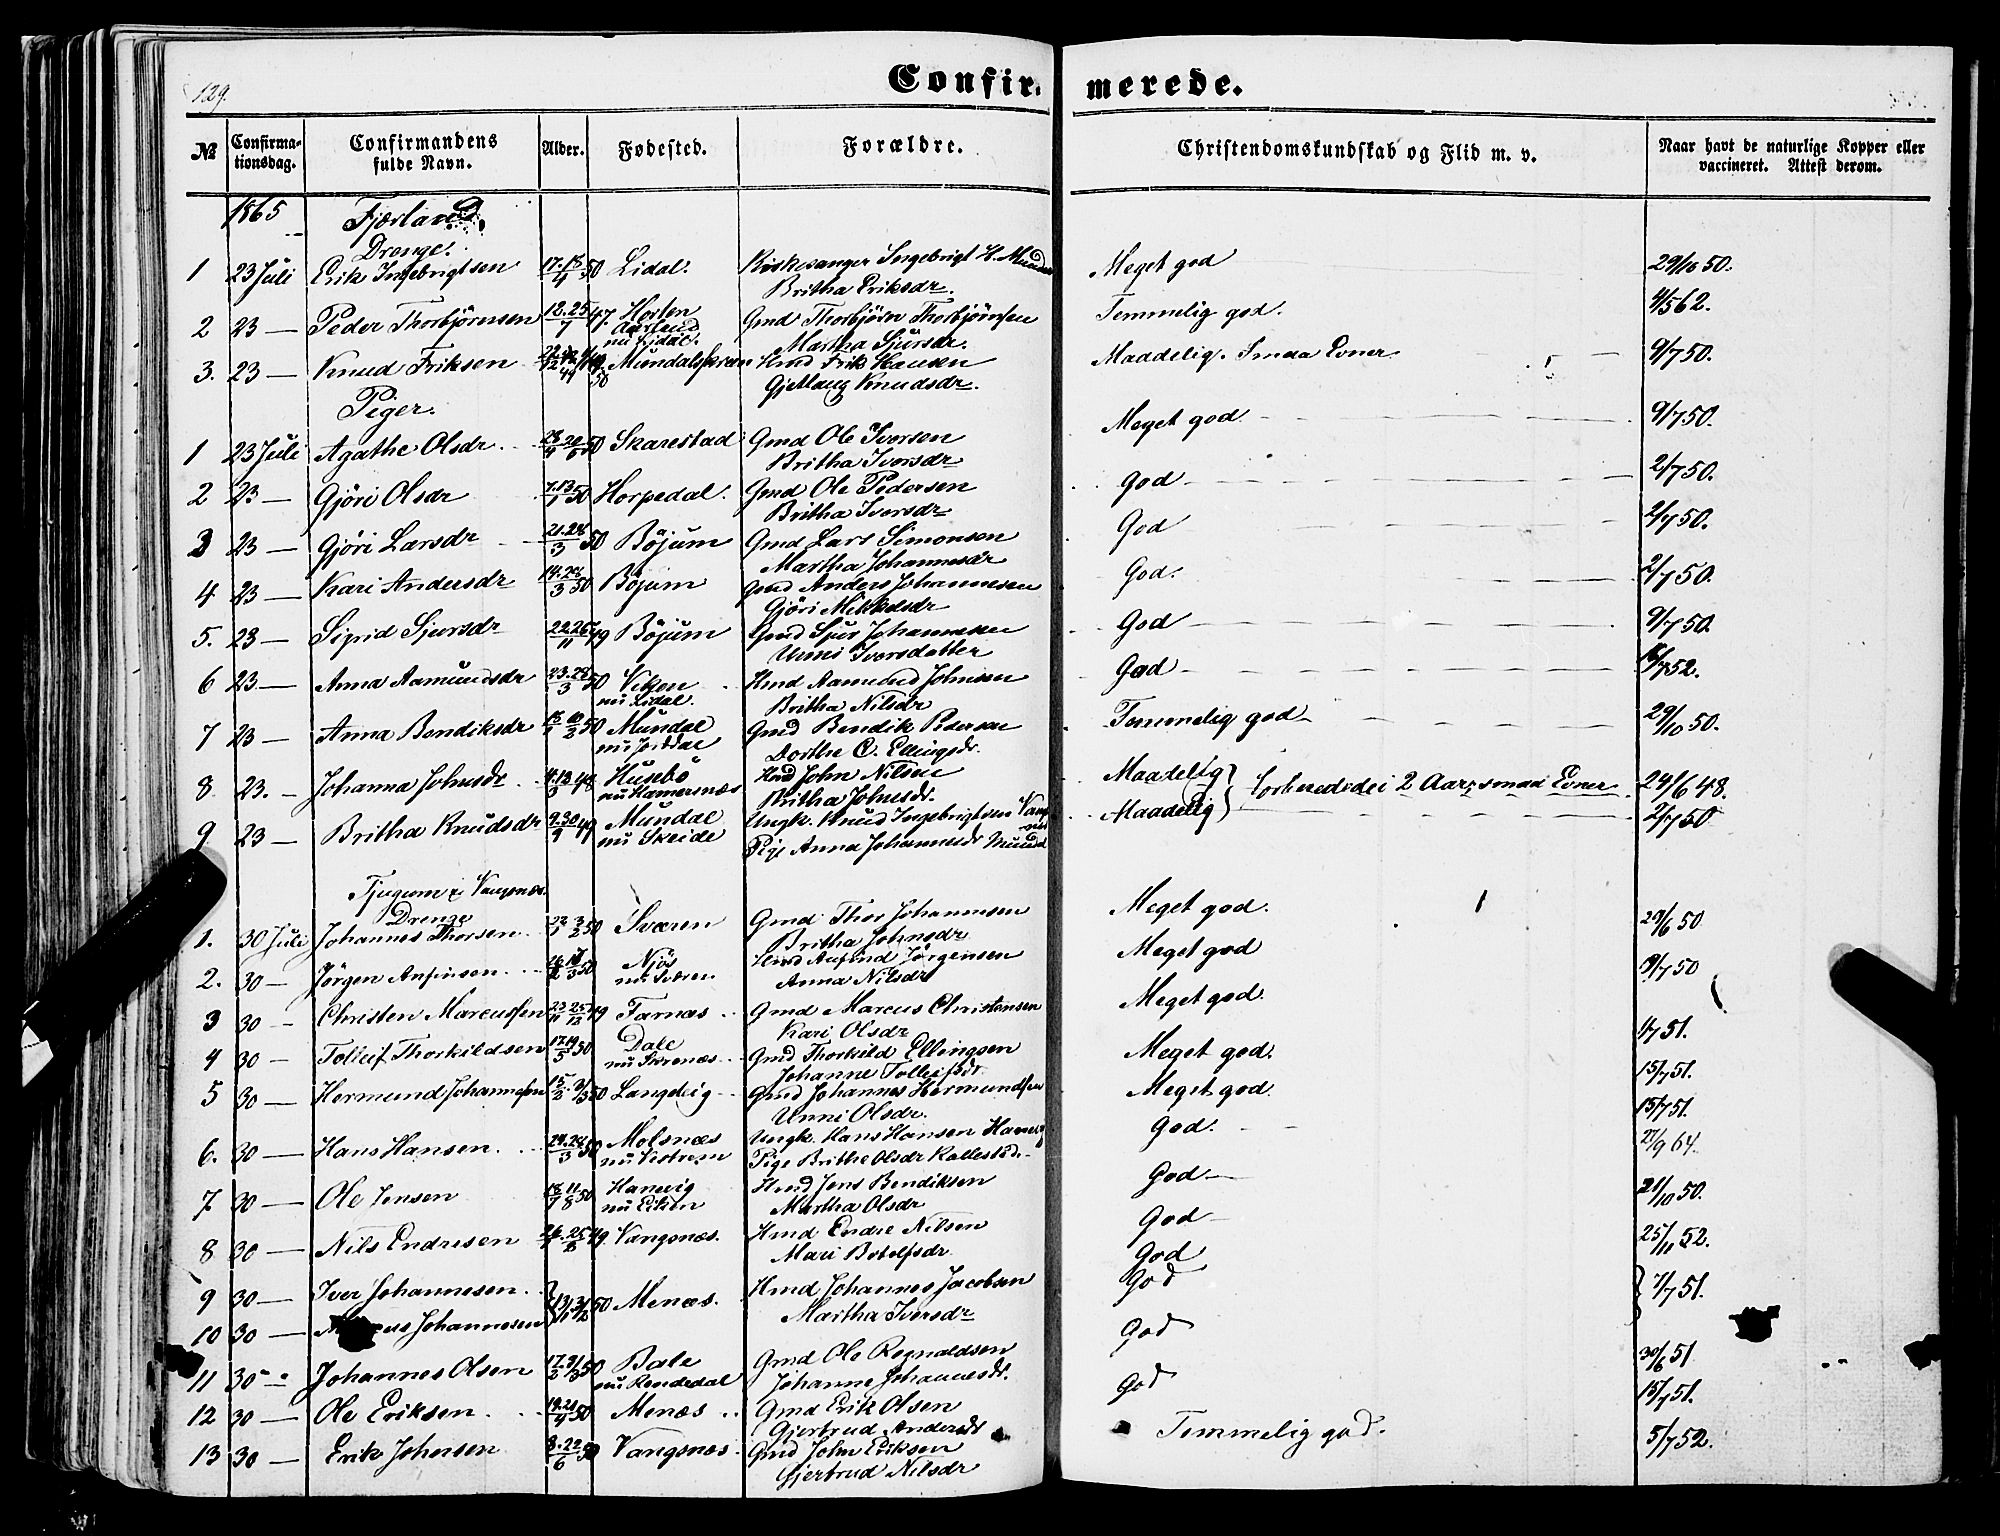 129.
Confirmerede.
№ Confirmationsdag. Confirmandens fulde Navn. Alder. Fødested. Forældre. Christendomskundskab og Flid m. v. Naar havt de naturlige Kopper eller vaccineret. Attest derom.
1865 Fjærland
Drenge.
1 23 Juli Erik Ingebrigtsen 17.18/4 50 Lidal. Kirkesanger Ingebrigt H. Mundal Meget god 29/10 50.
Britha Eriksdr.
2 23 — Peder Thorbjörnsen 47. Horten Gmd Thorbjörn Thorbjörnsen Temmelig god. 4/5 62.
Aarland
nu Lidal. Martha Sjursdr.
3. 23 — Knud Eriksen Hmd Erik Hansen Maadelig. Smaa Evner 9/7 50.
Gjertlaug Knudsdr.
Piger.
1 23 Juli Agathe Olsdr 50 Skarestad Gmd Ole Iversen Meget god 9/7 50.
Britha Iversdr
2 23 — Gjöri Olsdr 7.13/1 50 Horpedal. Gmd Ole Pedersen God 2/7 50.
Britha Iversdr
3 23 — Gjöri Larsdr 21.24/3 50 Böjum Gmd Lars Simonsen God 2/7 50.
Martha Johannesdr
4 23 — Kari Andersdr 14.24/3 50 Böjum Gmd Anders Johannesen God. 2/7 50.
Gjöri Mikkelsdr
5. 23 — Sigrid Sjursdr 22.25/11 49 Böjum Gmd Sjur Johannesen God 9/7 50.
Unni Iversdatter
6 23 — Anna Aamundsdr 23.28/3 50 Vikjen Hmd Aamund Johnsen God 52.
nu Lidal. Britha Nilsdr
7 23 — Anna Bendiksdr 50 Mundal Gmd Bendik Pedersen Temmelig god 29/10 50.
nu Jorddal Dorthe C. Ellingsdr.
8 23. — Johanna Johnsdr 4.13/5 48 Husebö Hmd John Nilsen Maadelig 2 Aar, smaa Evner 24/6 48.
nu Hamersnæs Britha Johnsdr.
9 23 — Britha Knudsdr 9.30/9 49 Mundal Ungk. Knud Ingebrigtsen Maadelig 2/7 50
nu Skeide Pige Anna Johannesdr Mundal
Tjugum & Vangsnæs.
Drenge
1. 30 Juli Johannes Thorsen 50 Sværen Gmd Thor Johannsen Meget god. 29/6 50
Britha Johnsdr
2. 30 — Jörgen Anfinsen 50 Njös Hmd Anfind Jörgensen Meget god 9/7 50
nu Sværen Anna Nilsdr
3 30 — Christen Marcussen 49 Farnæs Gmd Marcus Christensen Meget god. 1/7 51.
Kari Olsdr
4 30 — Tolleif Thorkildsen 17.19/5 50 Dale Gmd Thorkild Ellingsen Meget god. 15/7 51.
nu Skrenæs Johanne Tolleifsdr.
5 30 — Hermund Johannesen 50 Langeteig Gmd Johannes Hermundsen Meget god. 15/7 51.
Unni Olsdr.
6. 30 — Hans Hansen 24.28/3 50 Molsnæs Ungk. Hans Hansen God. 27/9 64.
nu Vestrem Pige Brithe Olsdr Kallestad
7 30 — Ole Jensen 50 Hanevig Hmd Jens Bendiksen God 21/10 50.
nu Eiken Martha Olsdr
8 30 — Nils Endresen 49. Vangsnæs. Hmd Endre Nilsen God 25/11 52.
Mari Botolfsdr
9 30 — Iver Johannesen 50 Menæs. Hmd Johannes Jacobsen God 7/7 51.
God
Martha Iversdr
10 30 — Johannesen God
11 30 Johannes Olsen 50 Bale Gmd Ole Regnaldsen God 30/6 51
nu Rendedal Johanne Johannesdr.
12 30 — Ole Eriksen 50 Menæs Gmd Erik Olsen 15/7 51.
Gjertrud Andersdr
13 30 — Erik Johnsen 8.22/6 50 Vangsnæs Gmd John Eriksen Temmelig god. 5/7 52.
Gjertrud Nilsdr